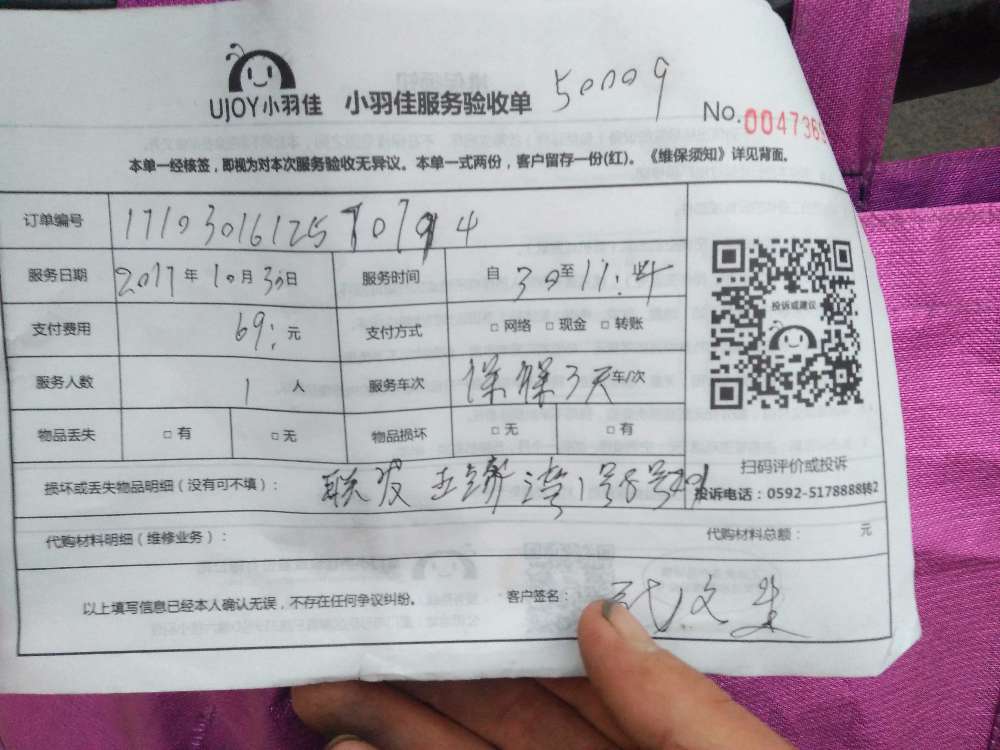 UJOY小羽佳 小羽佳服务验收单 50009
No.0047369
本单一经核签，即视为对本次服务验收无异议。本单一式两份，客户留存一份(红)。《维保须知》详见背面。
订单编号
服务日期 2017年10月30日 服务时间 自 至
支付费用 69: 元 支付方式 □ 网络 □ 现金 □ 转账
服务人数 1 人 服务车次 保 3天 车/次
投诉或建议
物品丢失 □ 有 □ 无 物品损坏 □ 无 □ 有
扫码评价或投诉
损坏或丢失物品明细（没有可不填）： 联发 湾1号8号
投诉电话：0592-5178888转2
代购材料明细（维修业务）： 代购材料总额： 元
以上填写信息已经本人确认无误，不存在任何争议纠纷。 客户签名：